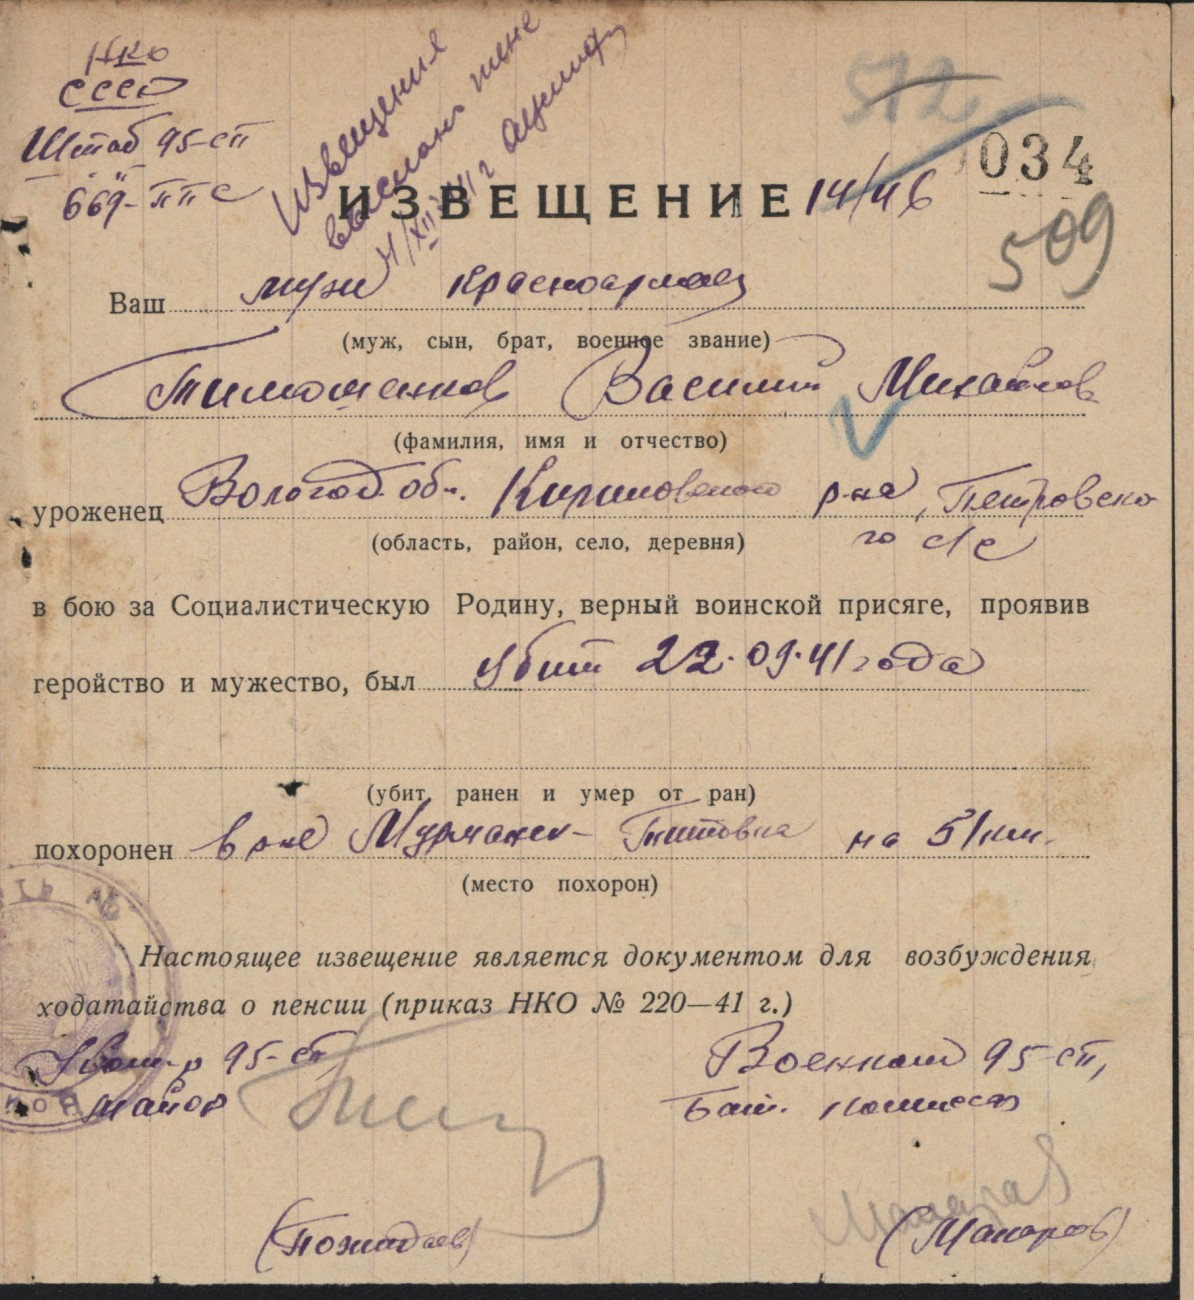 НКО
СССР
Штаб 95-сп
669-ППС
Извещения
высланы жене
4/XII-41 г
512
034
ИЗВЕЩЕНИЕ 14/46
509
Ваш муж красноармеец
(муж, сын, брат, военное звание)
Тимошенков Василий Михайлов.
(фамилия, имя и отчество)
уроженец Вологод. об. Кирилловского р-на, Петровско
го с/с
(область, район, село, деревня)
в бою за Социалистическую Родину, верный воинской присяге, проявив
геройство и мужество, был убит 22.09.41 года
(убит, ранен и умер от ран)
похоронен в р-не Мурманск- Титовка на 51 км.
(место похорон)
Настоящее извещение является документом для возбуждения
ходатайства о пенсии (приказ НКО № 220—41 г.)
95-сп, Военком 95-сп,
майор Бат. комиссар
Макаров
(Пожидаев) (Макаров)